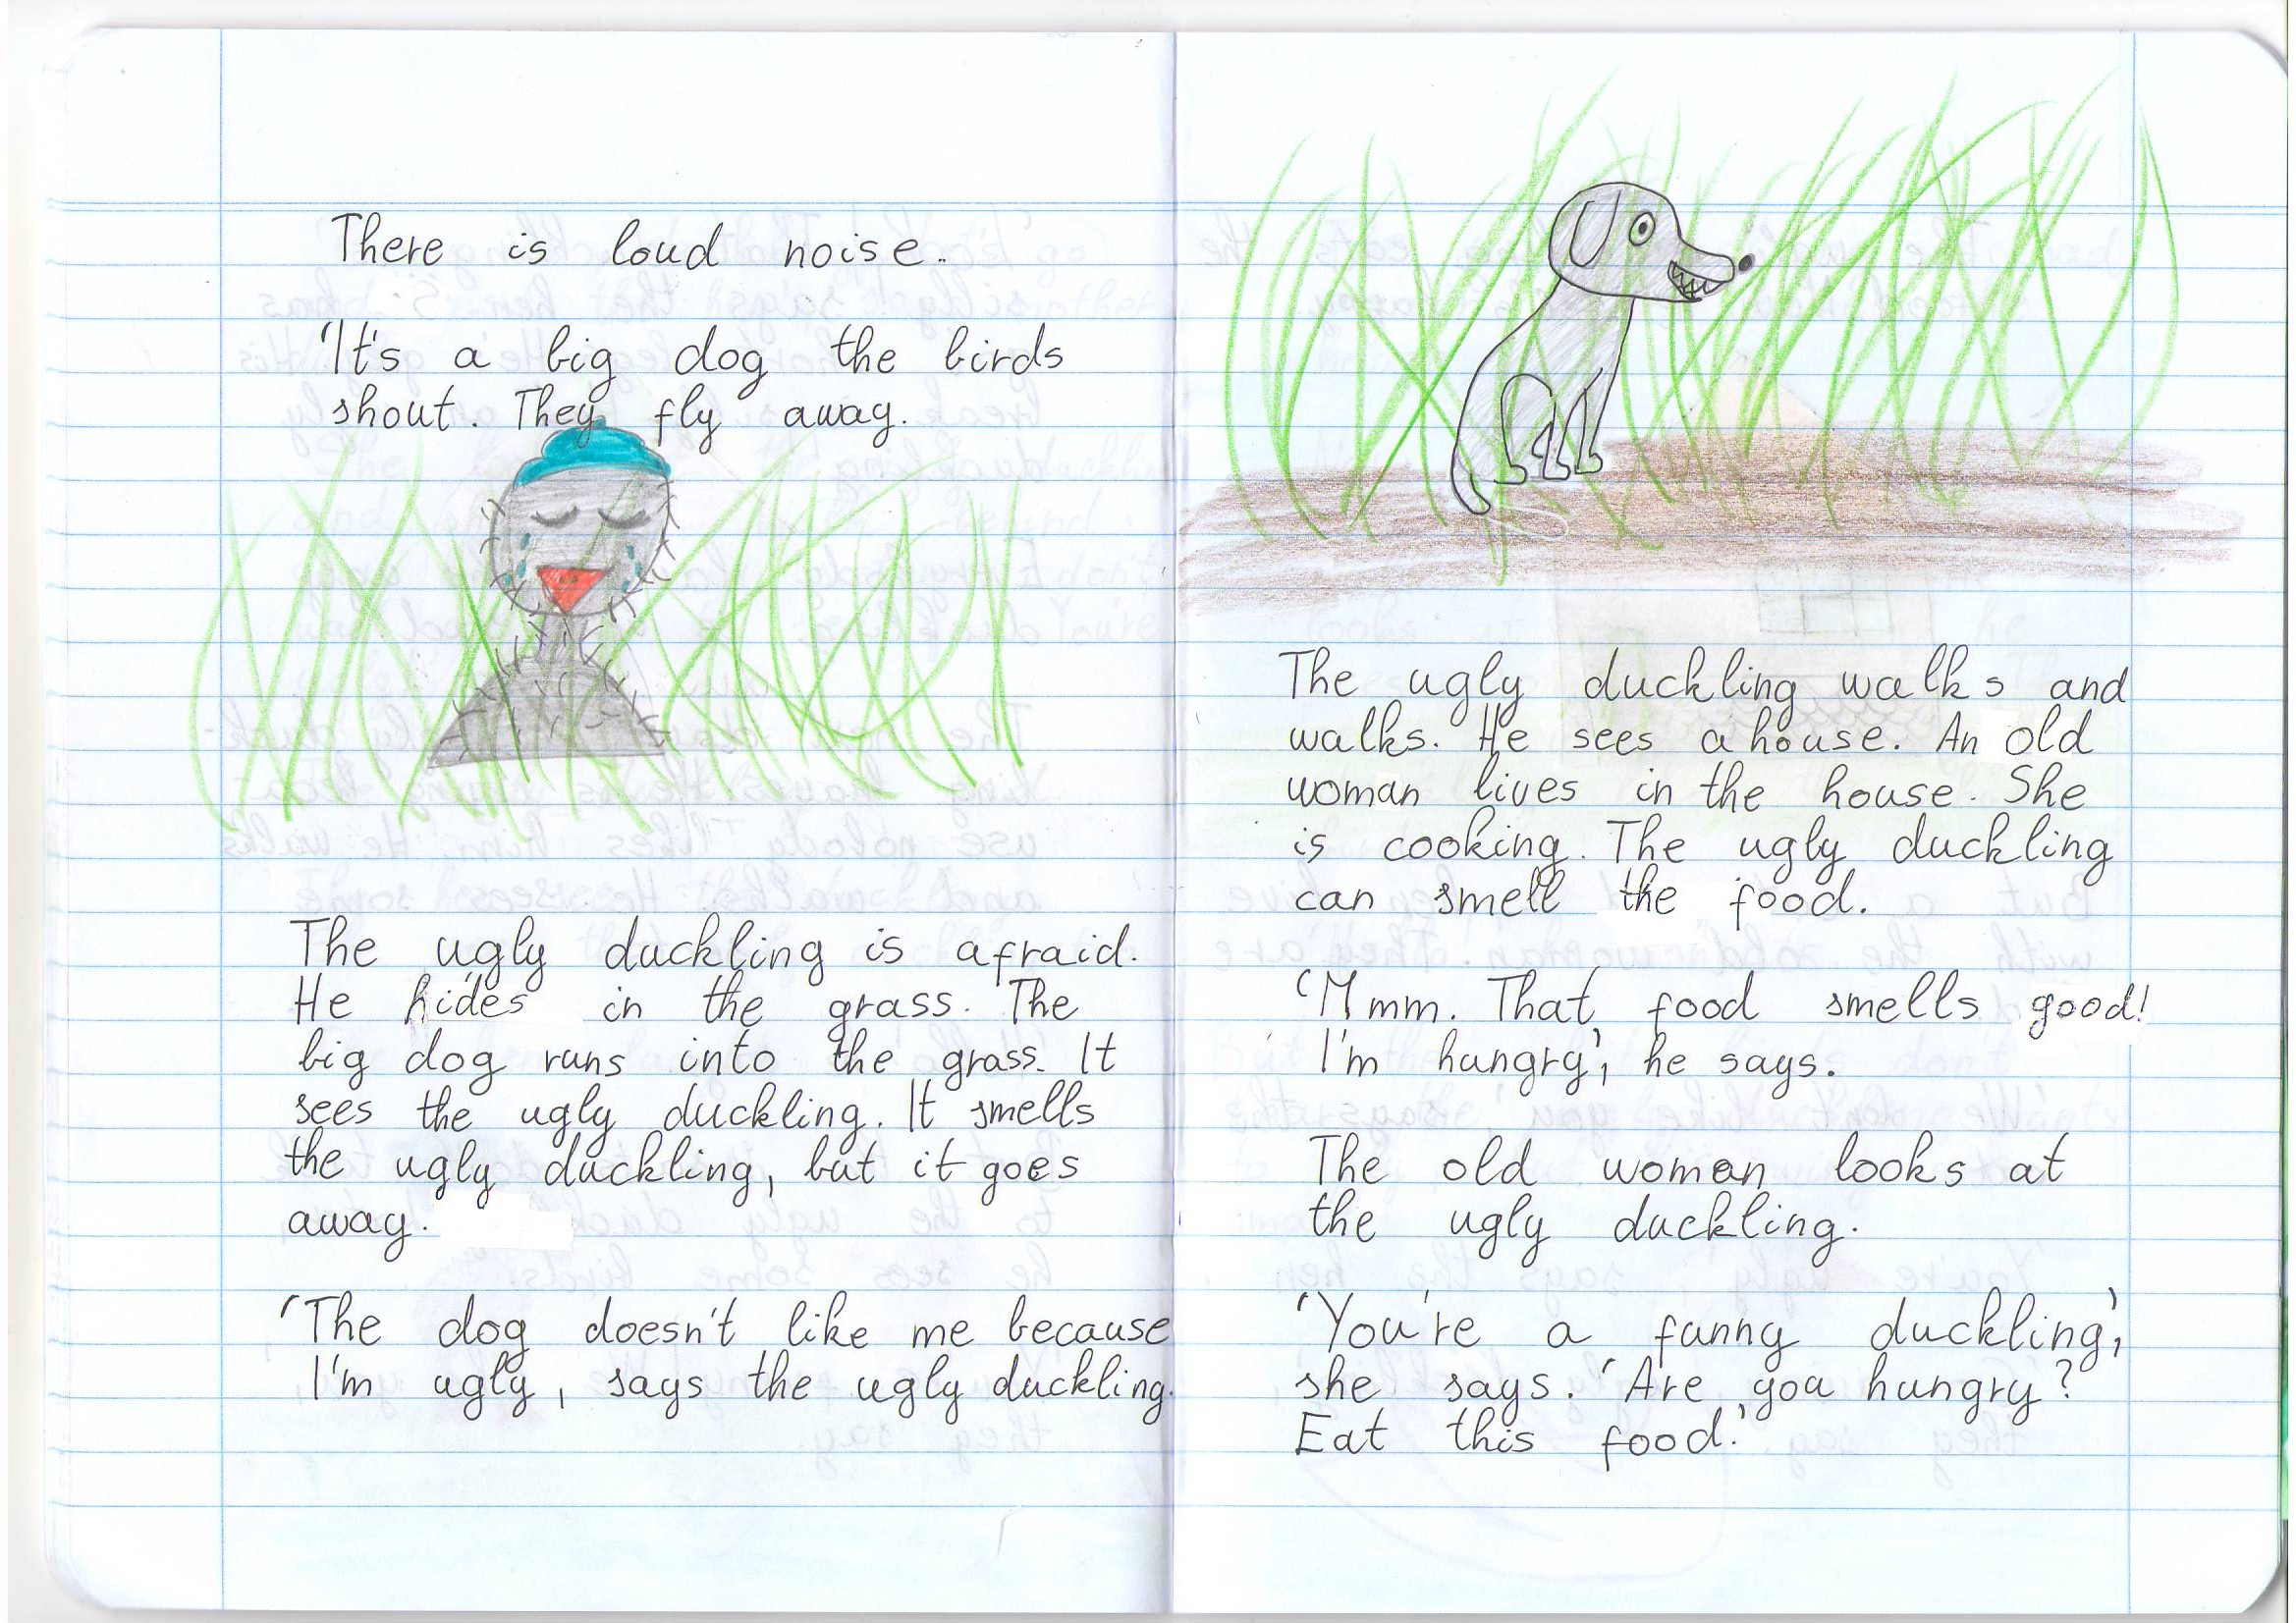 There is loud noise.
'It's a big dog the birds
shout. They fly away.
The ugly duckling is afraid.
He hides in the grass. The
big dog runs into the grass. It
sees the ugly duckling. It smells
the ugly duckling, but it goes
away.
'The dog doesn't like me because
I'm ugly, says the ugly duckling.
The ugly duckling walks and
walks. He sees a house. An old
woman lives in the house. She
is cooking. The ugly duckling
can smell the food.
'Mmm. That food smells good!
I'm hungry', he says.
The old woman looks at
the ugly duckling.
'You're a funny duckling',
she says. 'Are you hungry?
Eat this food.'